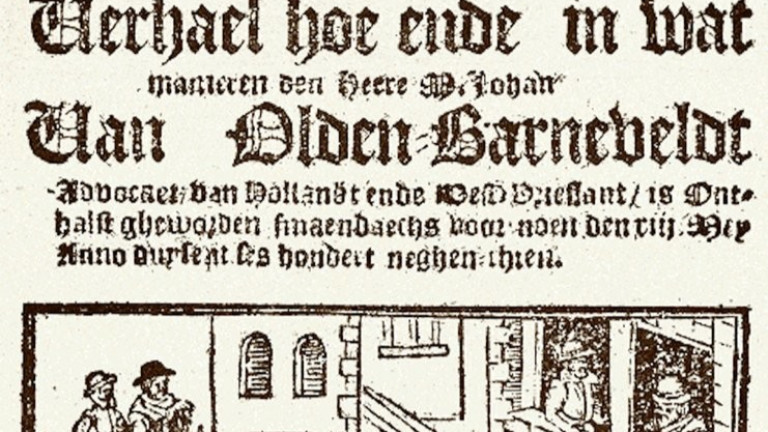 Verhael hoe ende in wat
manieren den Heere M. Johan
Van Olden-Barneveldt
Advocaet van Hollandt ende West-Vrieslant/ is Ont-
halst gheworden smaendaechs voor noen den xiij. Mey
Anno duysent ses hondert neghen-thien.